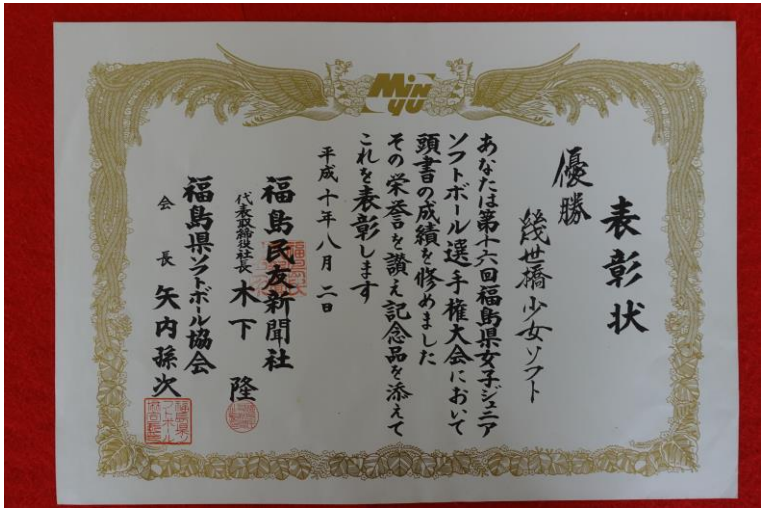 MiNYU
表彰状
優勝
幾世橋少女ソフト
あなたは第十六回福島県女子ジュニア
ソフトボール選手権大会において
頭書の成績を修めました
その栄誉を讃え記念品を添えて
これを表彰します
平成十年八月二日
福島民友新聞社
代表取締役社長 木下隆
福島県ソフトボール協会
会長 矢内孫次